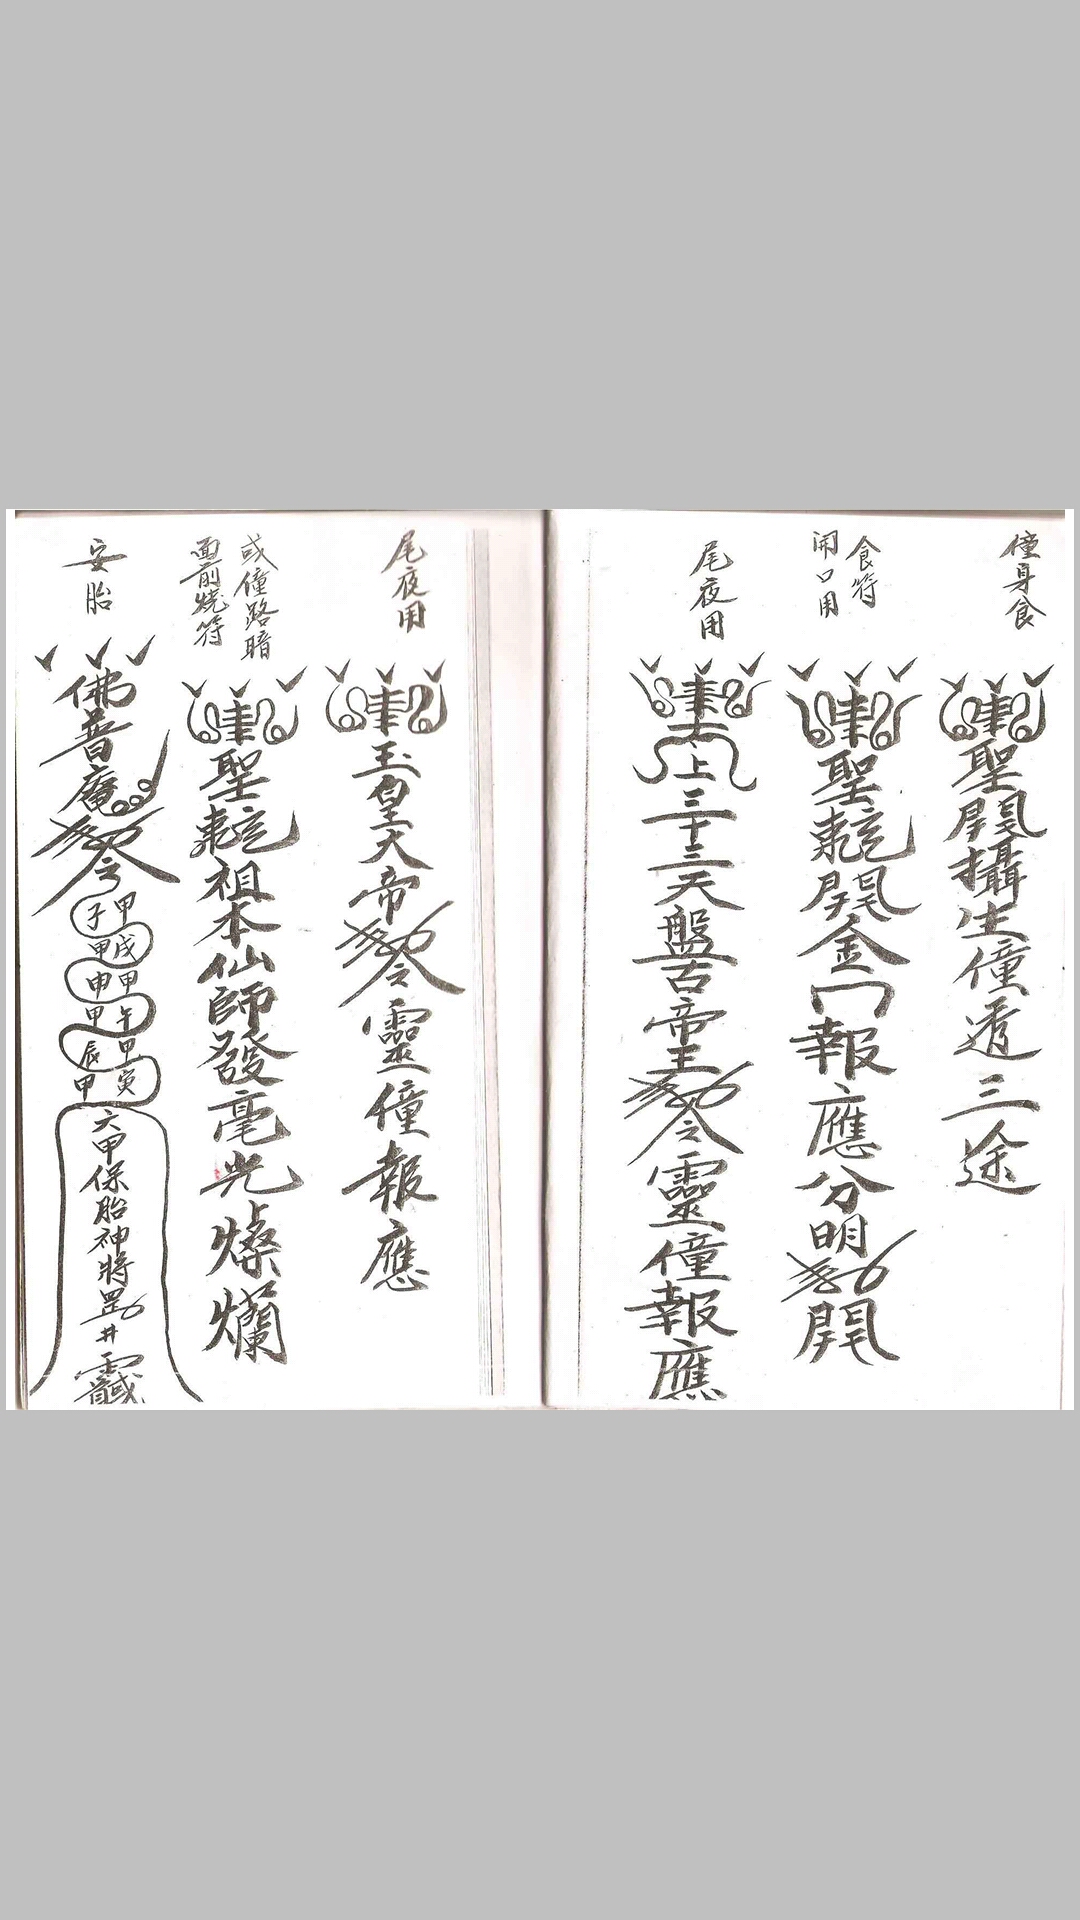 僮身食
聖開攝生僮透三途
食符
開口用
聖乾開金門報應分明開
尾夜用
上三十三天盤古帝王令靈僮報應
尾夜用
玉皇大帝令靈僮報應
或僮路暗
面前燒符
聖乾祖本仙師發毫光燦爛
安胎
佛普庵令
甲子
甲戌
甲申
甲午
甲辰
甲寅
六甲保胎神將罡井